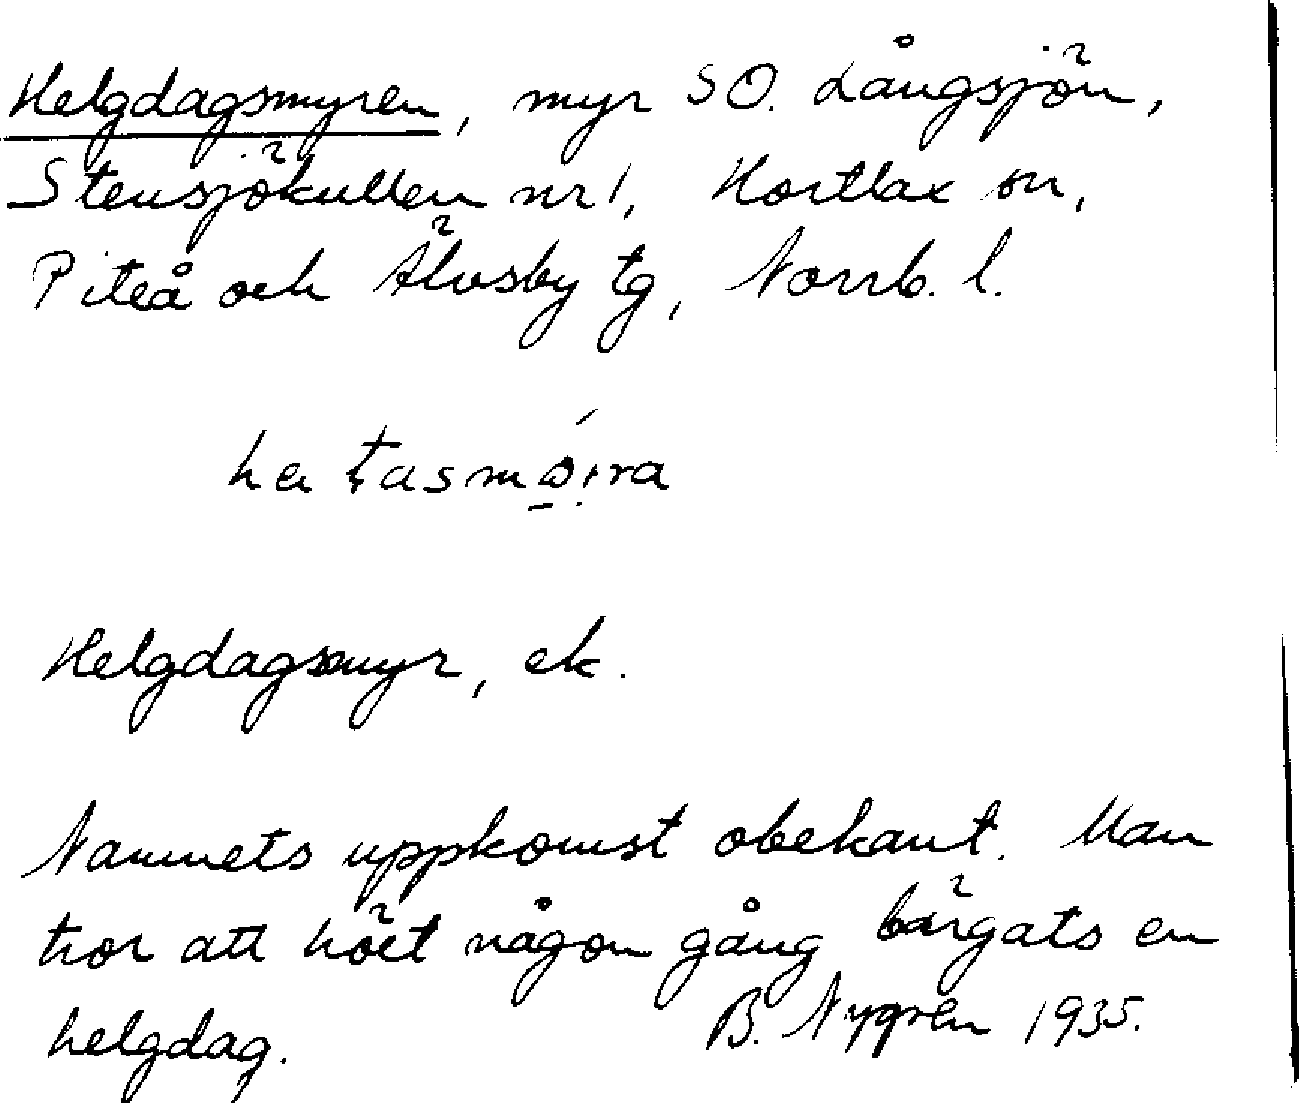 Helgdagsmyren, myr SO. Långsjön,
Stensjökullen nr 1, Hortlax sn,
Piteå och Älvsby tg, Norrb. l.
Helgdagsmyr, ek.
Namnets uppkomst obekant. Man
tror att höet någon gång bärgats en
helgdag.
B. Nygren 1935.